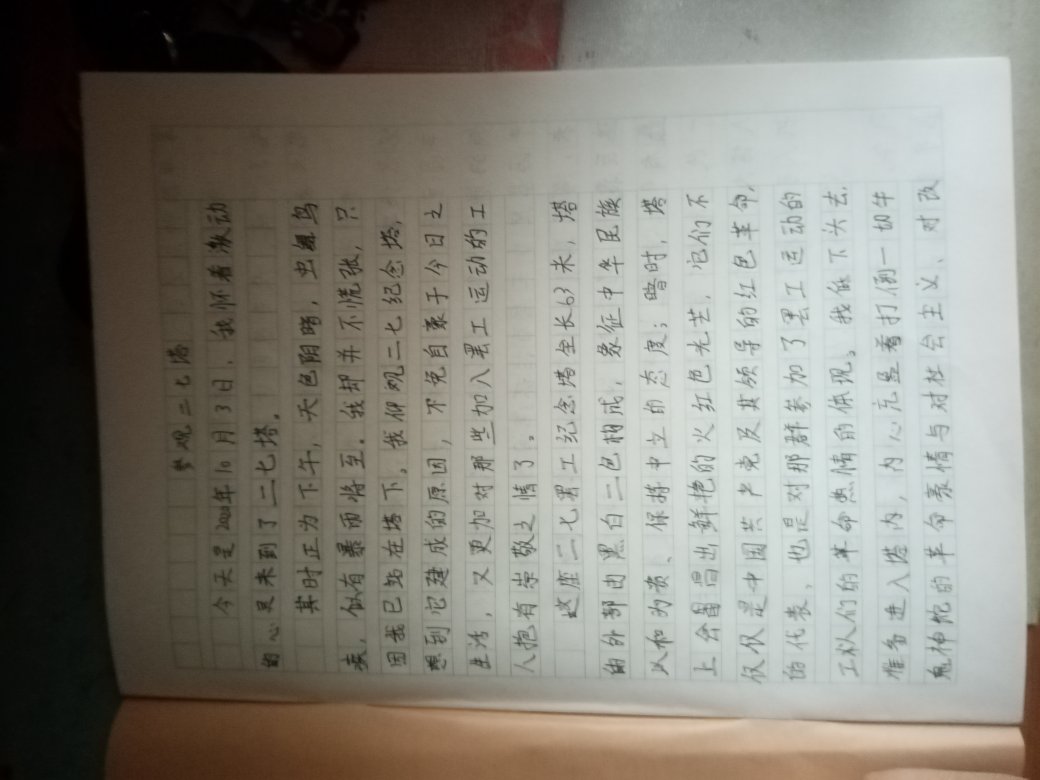 参观二七塔
今天是2020年10月3日，我怀着激动
的心灵来到了二七塔。
其时正为下午，天色阴暗，虫飞鸟
疾，似有暴雨将至。我却并不慌张，只
因我已站在塔下。我仰观二七纪念塔，
想到它建成的原因，不免自豪于今日之
生活，又更加对那些加入罢工运动的工
人抱有崇敬之情了。
这座二七罢工纪念塔全长63米，塔
的外部由黑白二色构成，象征中华民族
以和为贵、保持中立的态度；暗时，塔
上会冒出鲜艳的火红色光芒，它们不
仅仅是中国共产党及其领导的红色革命
的代表、也是对那群参加了罢工运动的
工人们的革命热情的体现。我低下头去，
准备进入塔内，内心充盈着打倒一切牛
鬼神蛇的革命豪情与对社会主义、对改